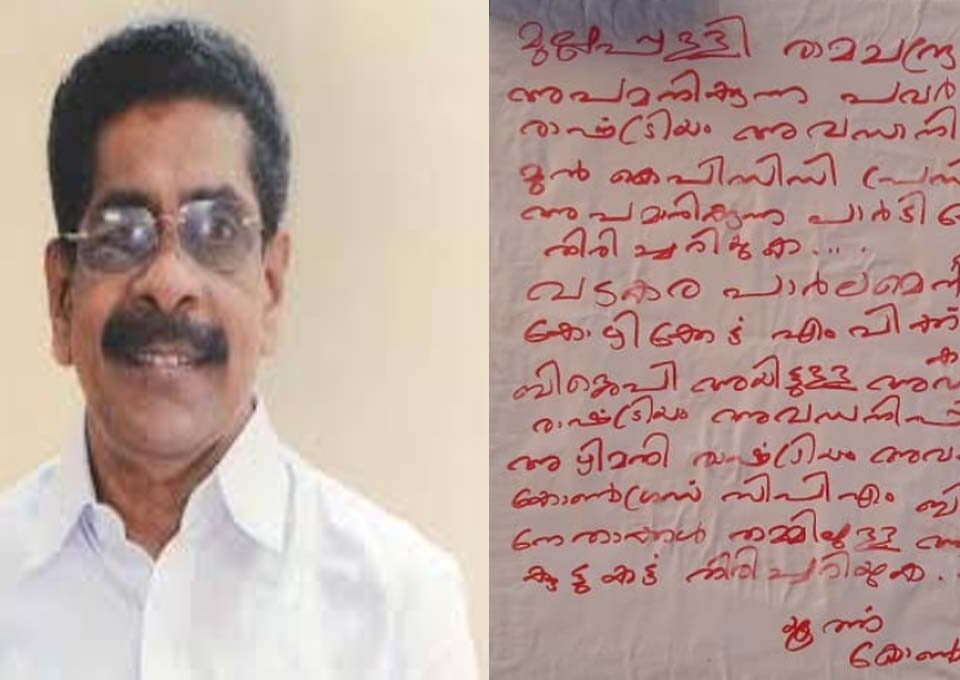 മുല്ലപ്പള്ളി രാമചന്ദ്ര
അപമാനിക്കുന്ന പവർ
രാഷ്ട്രീയം അവസാനി
മുൻ കെപിസിസി പ്രസി
അപമാനിക്കുന്ന പാർടി
തിരിച്ചറിയുക....
വടകര പാർലമെൻ
കോഴിക്കോട് എംപിക്ക്
ബിജെപി അയിട്ടുള്ള
രാഷ്ട്രീയം അവസാനിപ്പ
അഴിമതി രാഷ്ട്രീയം അവ
കോൺഗ്രസ് സിപിഎം ബി
നേതാക്കൾ തമ്മിലുള്ള
കൂട്ടുകെട്ട് തിരിച്ചറിയുക..